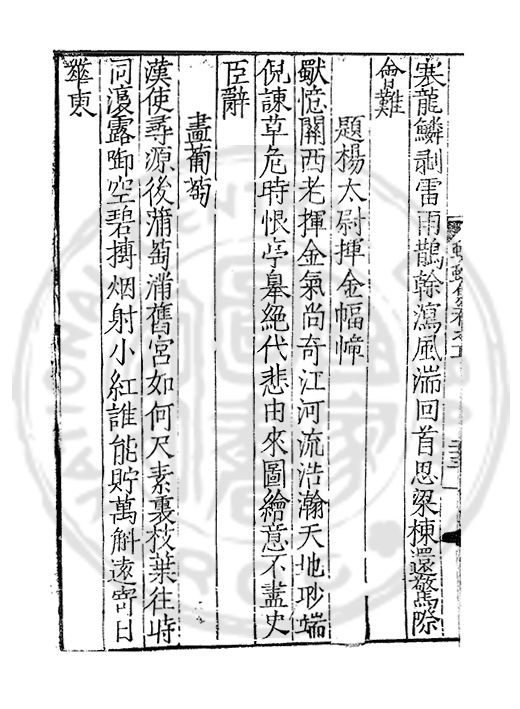 寒龍鱗剥雷雨鵲翰瀉風湍回首思梁棟還驚際
會難
題楊太尉揮金幅幛
獸憶關西老揮金氣尚奇江河流浩瀚天地眇端
倪諫草危時恨亭皋絶代悲由來圖繪意不盡史
臣辭
畫葡萄
漢使尋源後蒲萄滿舊宮如何尺素裏枝葉往時
同瀼露啣空碧摶烟射小紅誰能貯萬斛遠寄日
華東